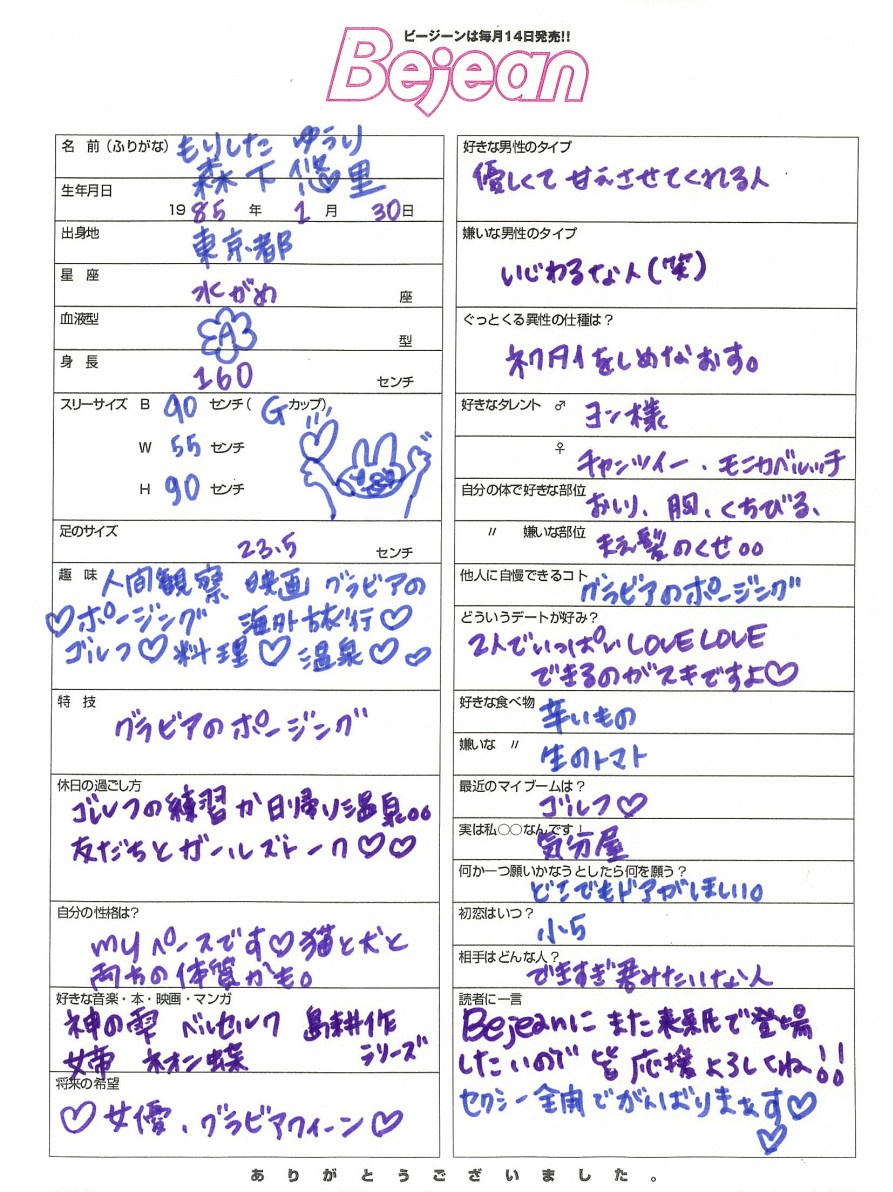 ビージーンは毎月14日発売!!
Bejean
名 前(ふりがな) もりした ゆうり
森下悠里
生年月日
1985年 1月 30日
出身地
東京都
星 座
水がめ 座
血液型
A 型
身 長
160 センチ
スリーサイズ B 90 センチ( Gカップ)
W 55 センチ
H 90 センチ
足のサイズ
23.5 センチ
趣 味 人間観察 映画 グラビアの
♡ポージング 海外旅行♡
ゴルフ♡料理♡温泉♡♡
特 技
グラビアのポージング
休日の過ごし方
ゴルフの練習か日帰り温泉。。
友だちとガールズトーク♡♡
自分の性格は?
myペースです♡猫と犬と
両方の体質かも。
好きな音楽・本・映画・マンガ
神の雫 ベルセルク 島耕作
女帝 ネオン蝶 シリーズ
将来の希望
♡女優、グラビアクィーン♡
好きな男性のタイプ
優しくて甘えさせてくれる人
嫌いな男性のタイプ
いじわるな人(笑)
ぐっとくる異性の仕種は?
ネクタイをしめなおす。
好きなタレント ♂ ヨン様
♀ チャンツィー、モニカベルッチ
自分の体で好きな部位
おしり、胸、くちびる、
〃 嫌いな部位 まえ髪のくせ。。
他人に自慢できるコト
グラビアのポージング
どういうデートが好み?
2人でいっぱいLOVE LOVE
できるのがスキですよ♡
好きな食べ物
辛いもの
嫌いな 〃
生のトマト
最近のマイブームは?
ゴルフ♡
実は私○○なんです!
気分屋
何か一つ願いかなうとしたら何を願う?
どこでもドアがほしい。
初恋はいつ?
小5
相手はどんな人?
できすぎ君みたいな人
読者に一言
Bejeanにまた来月で登場
したいので皆応援よろしくね!!
セクシー全開でがんばりまぁす♡
♡
ありがとうございました。